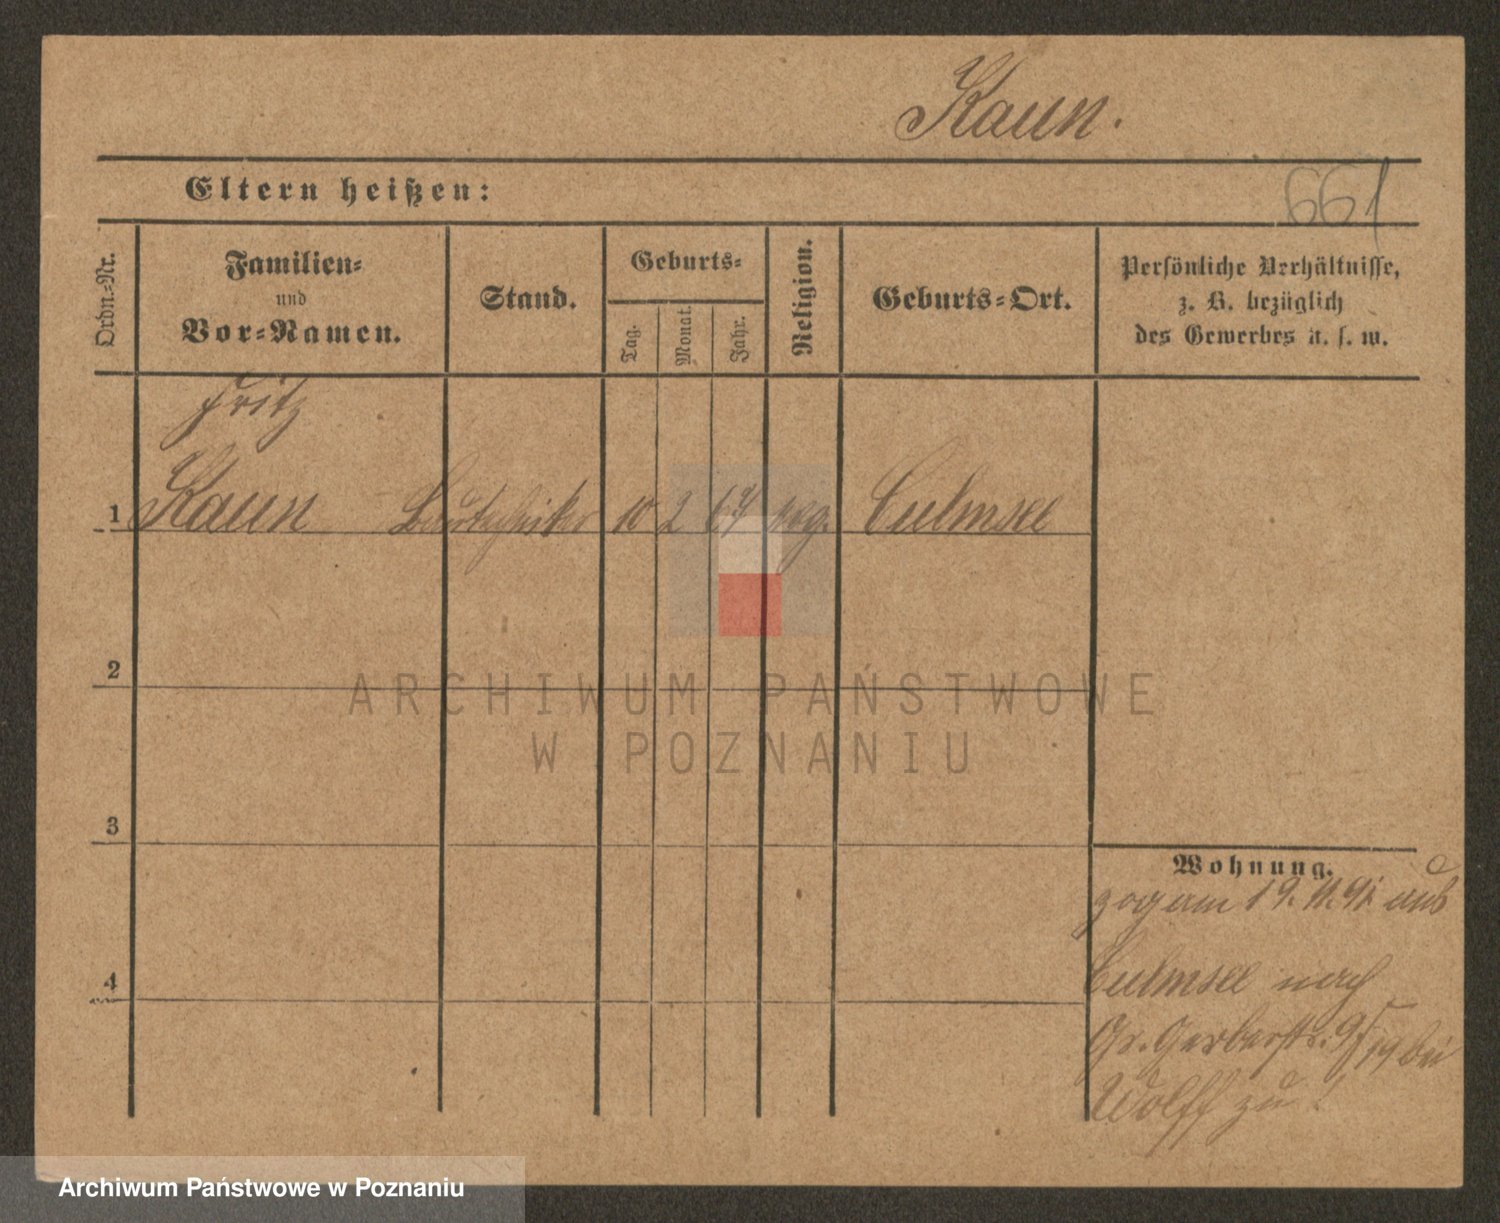 Kaun.
661
Eltern heißen:
Ordn.-Nr.
Familien-
und
Vor-Namen.
Stand.
Geburts-
Tag.
Monat.
Jahr.
Religion.
Geburts-Ort.
Persönliche Verhältnisse,
z. B. bezüglich
des Gewerbes u. s. w.
Fritz
1 Kaun Bautechniker 10 2 64 evg. Culmsee
2
3
4
Wohnung.
zog am 19. 11. 91 aus
Culmsee nach
Gr. Gerberstr. 9/ bei
Wolff zu!
ARCHIWUM PAŃSTWOWE
W POZNANIU
Archiwum Państwowe w Poznaniu